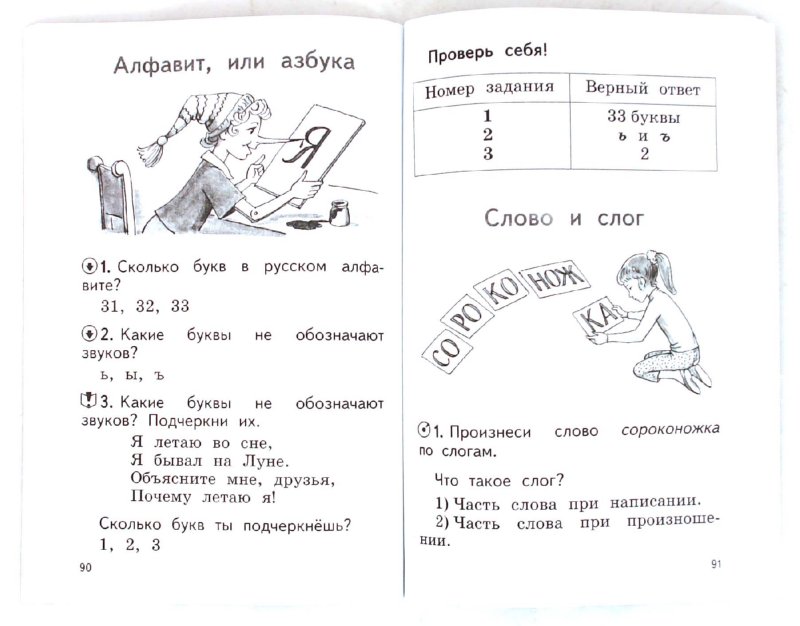 Алфавит, или азбука
Я
1. Сколько букв в русском алфа-
вите?
31, 32, 33
2. Какие буквы не обозначают
звуков?
ь, ы, ъ
3. Какие буквы не обозначают
звуков? Подчеркни их.
Я летаю во сне,
Я бывал на Луне.
Объясните мне, друзья,
Почему летаю я!
Сколько букв ты подчеркнёшь?
1, 2, 3
90
Проверь себя!
Номер задания Верный ответ
1 33 буквы
2 ь и ъ
3 2
Слово и слог
СО РО КО НОЖ КА
1. Произнеси слово сороконожка
по слогам.
Что такое слог?
1) Часть слова при написании.
2) Часть слова при произноше-
нии.
91